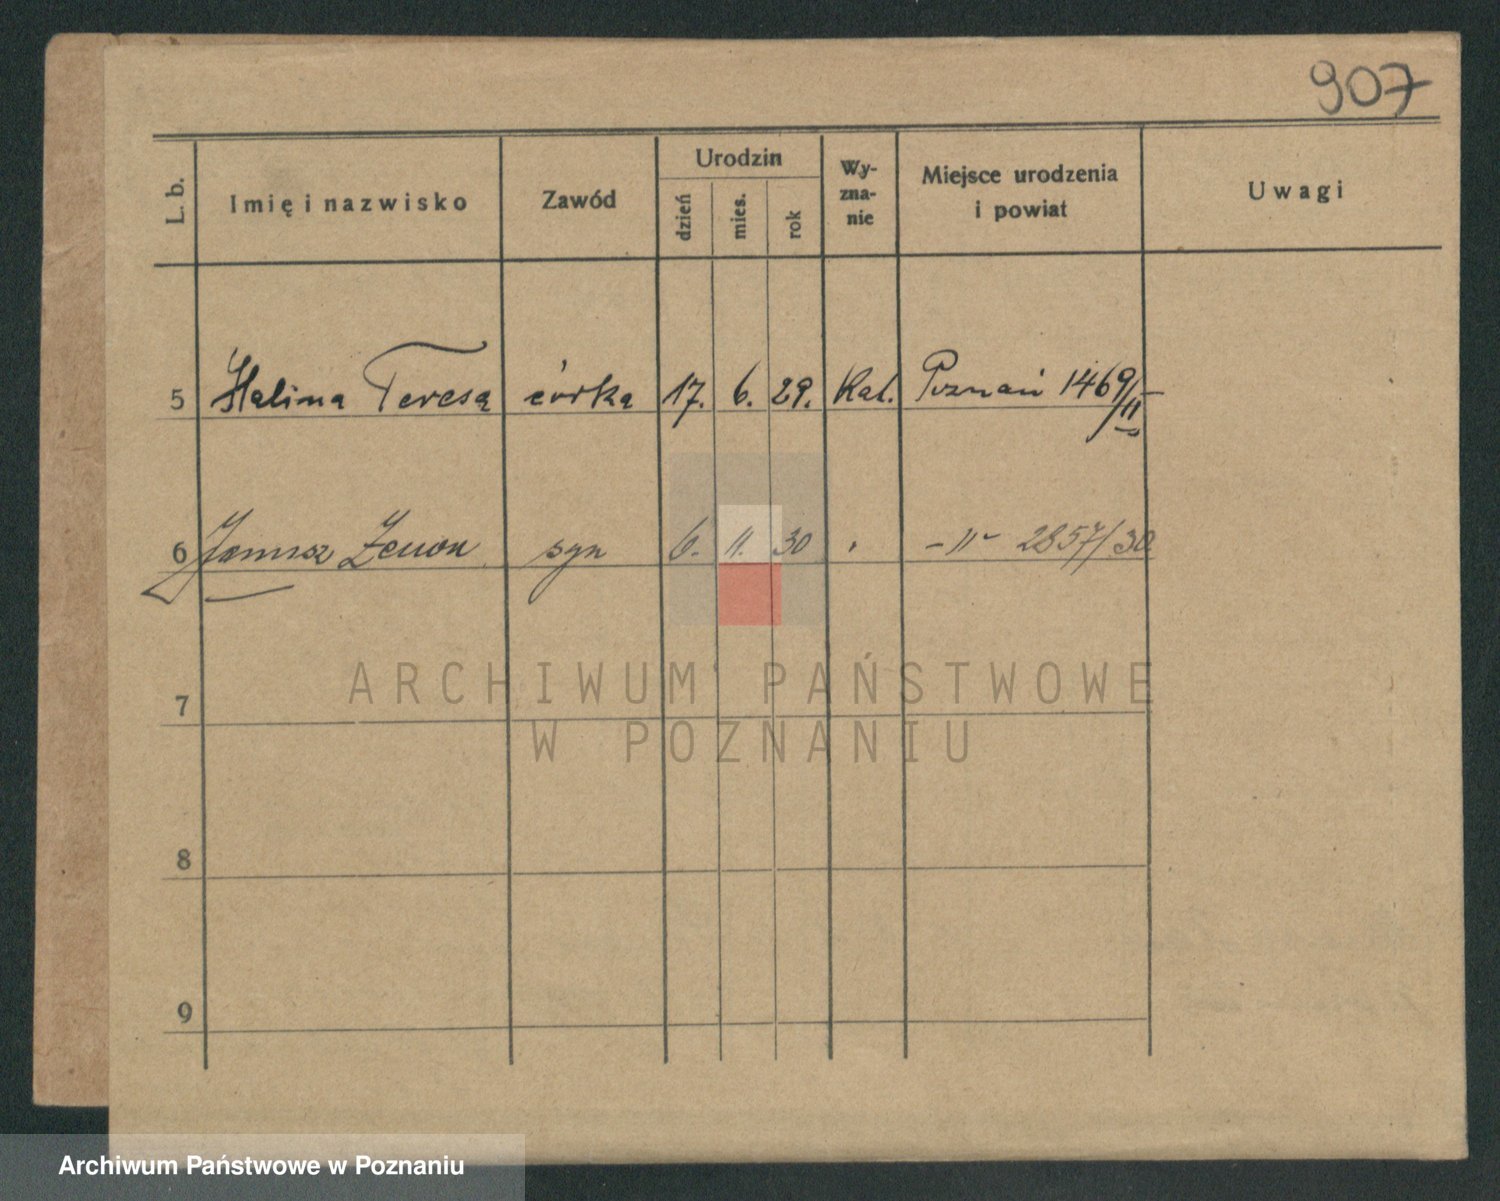 907
L. b. Imię i nazwisko Zawód Urodzin dzień mies. rok Wy-zna-nie Miejsce urodzenia i powiat Uwagi
5 Halina Teresa córka 17. 6. 29. Kat. Poznań 1469/II
6 Janusz Zenon syn 6. 11. 30 " -"- 2857/30
ARCHIWUM PAŃSTWOWE
W POZNANIU
7
8
9
Archiwum Państwowe w Poznaniu